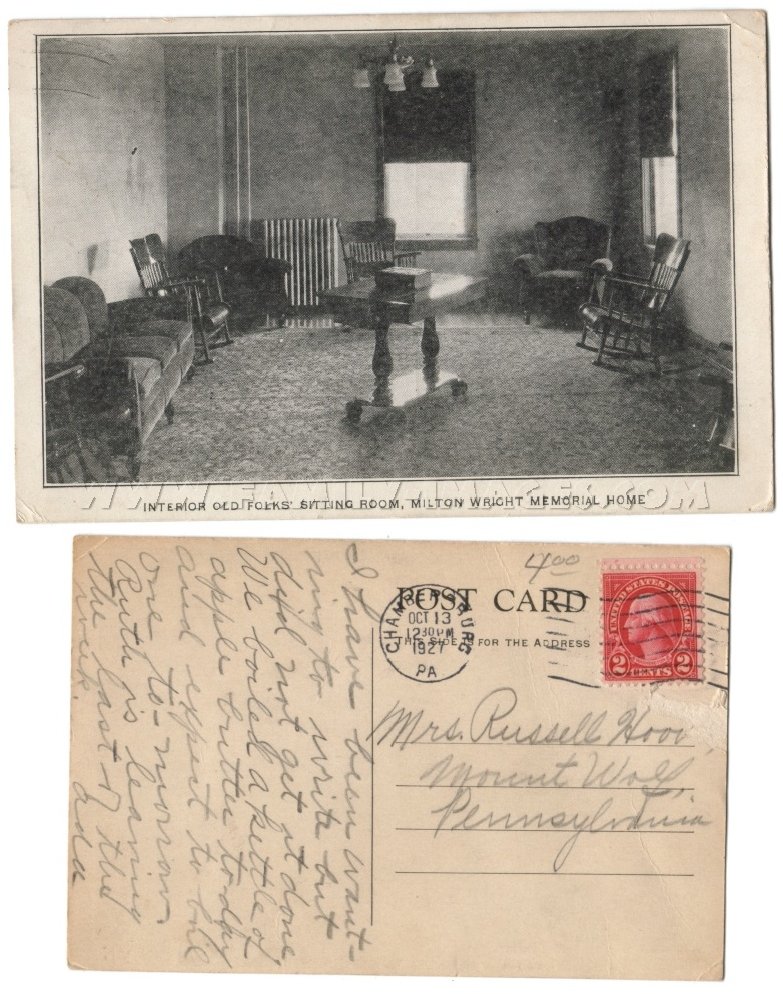 WWW.FAMILYIMAGES.COM
INTERIOR OLD FOLKS' SITTING ROOM, MILTON WRIGHT MEMORIAL HOME
4.00
POST CARD
THIS SIDE IS FOR THE ADDRESS
CHAMBERSBURG
OCT 13
12 30 PM
1927
PA
UNITED STATES POSTAGE
2 CENTS 2
Mrs. Russell Hoov
Mount Wolf,
Pennsylvania
I have been want-
ing to write but
did not get it done
We boiled a kettle of
apple butter today
and expect to boil
one to-morrow
Ruth is leaving
the last of the
week. Ada